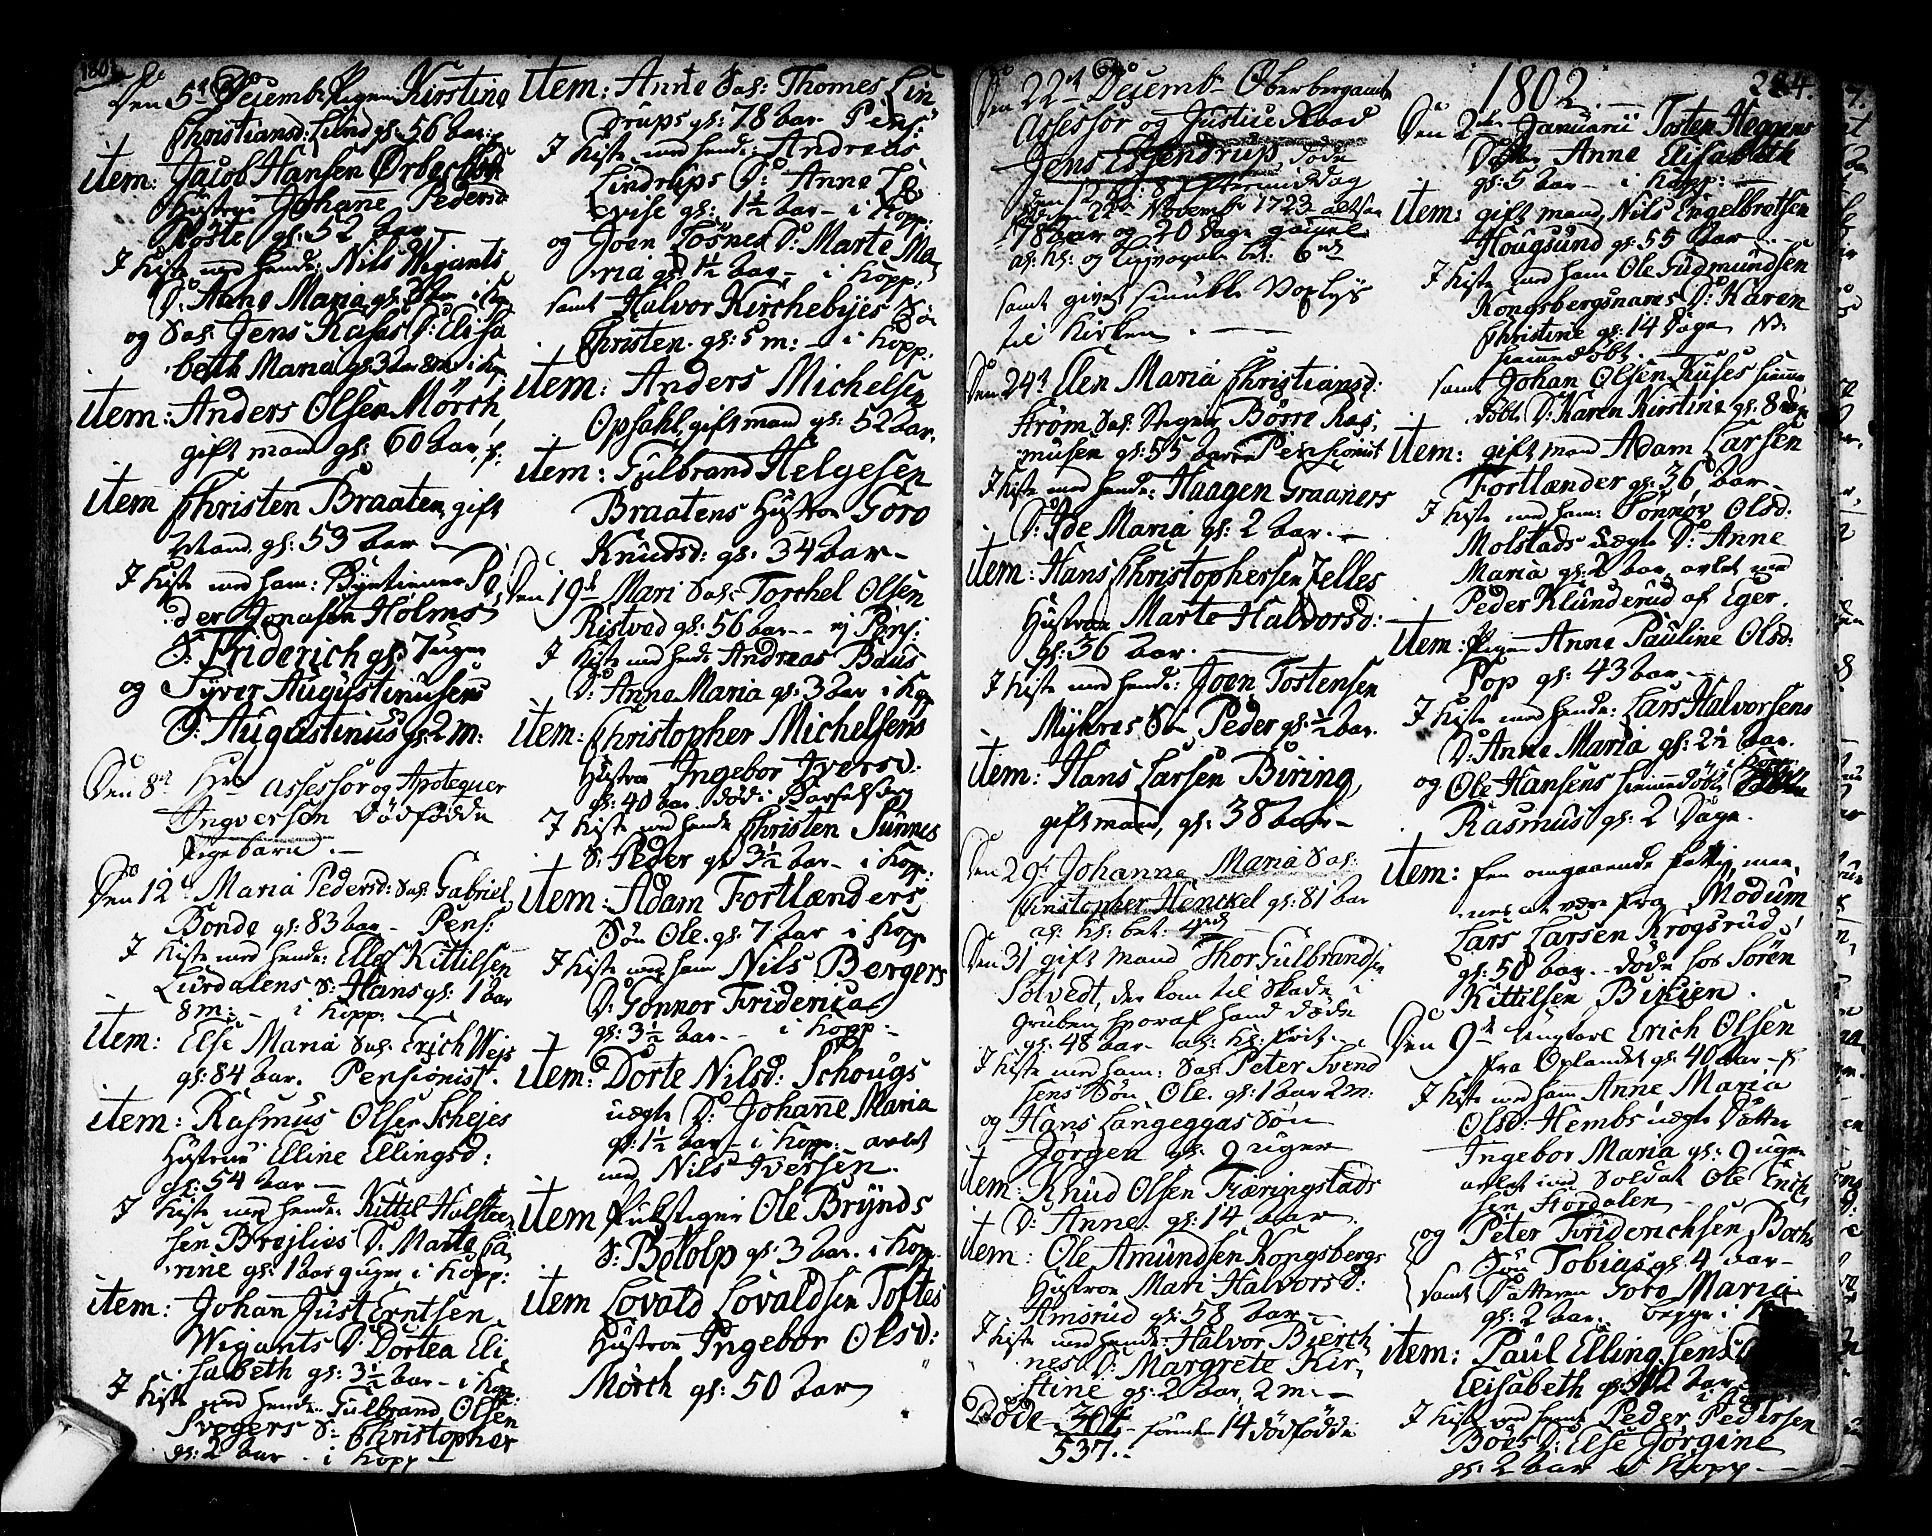 1801
Den 5t Decemb. Pigen Kirstine
Christiansd: Lund gl: 56 aar
item: Jacob Hansen Ørbechs
Hustrue Johanne Pedersd
Røste gl: 52 aar
I Kiste med hende: Nils Wigants
D: Anne Maria gl: 3 aar i Kop
og Sal: Jens Kases D: Elisa
beth Maria gl: 3 aar 8 m i Kop
item: Anders Olsen Mörch
gift mand gl: 60 aar
item Christen Braaten, gift
Mand gl: 53 aar
I Kiste med ham: Pe
der Jonasen Holms
S: Friderich gl: 7 uger
og Syver Augustinusens
S: Augustinus gl: 2 m:
Den 8de Hr: assessor og Apotequer
Ingversen Dödfødde
Pigebarn.
Den 12t Maria Pedersd: Sal: Gabriel
Bonde gl: 83 aar Pens:
I Kiste med hende: Ellef Kittilsen
Lurdalens S: Hans gl: 1 aar
8 m: i Kopp:
item: Else Maria Sal: Erich Weis
gl: 84 aar. Pensionist.
item: Rasmus Olsen Schejes
Hustrue Elline Ellingsd:
gl: 54 aar
I Kiste med hende: Kittel Halsteen
sen Brejlies D: Marte Ca
rine gl: 1 aar 9 uger i Kopp:
item: Johan Just Erntsen
Wigants D: Dortea Eli
sabeth gl: 3½ aar i Kop:
I Kiste med hende: Gulbrand Olsen
Svegers S: Christopher
gl: 2 aar i Kopp
item: Anne Sal: Thomes Lin
drups gl: 78 aar Pens:
I Kiste med hende: Andreas
Lindrups D: Anne Lo
vise gl: 1½ aar i Kopp:
og Joen Losnes D: Marte Ma
ria gl: 1½ aar i Kopp:
samt Halvor Kirchebyes Sön
Christen gl: 5 m: i Kopp:
item: Anders Michelsen
Opsahl, gift mand gl: 52 aar.
item: Gulbrand Helgesen
Braatens Hustrue Goro
Knudsd: gl: 34 aar
Den 19t Mari Sal: Torchel Olsen
Ristvad gl: 56 aar ej Pens:
I Kiste med hende Andreas Baus
D: Anne Maria gl: 3 aar i Kop
item: Christopher Michelsens
Hustrue Ingebor Iversd:
gl: 40 aar död i Barselseng
I Kiste med hende Christen Sunnes
S: Peder gl 3½ aar i Kopp:
item: Adam Fortlænders
Sön Ole gl: 7 aar i Kopp
I Kiste med ham Nils Bergers
D: Gonnor Friderica
gl: 3½ aar i Kopp:
item: Dorte Nilsd: Schougs
uægte D: Johanne Maria
gl: 1½ aar i Kopp: avlet
med Nils Iversen.
item Pukstiger Ole Brynds
S: Botolp gl: 3 aar i Kopp
item Lovald Lovaldsen Toftes
Hustrue Ingebor Olsd:
Mörch gl: 50 aar
Den 22t Decemb Oberbergamts
Assessor og Justice Raad
Jens Esgendrup, døde
den 12 kl: 8 eftermiddag
22de Novemb 1723 altsaa
78 aar og 20 dage gammel
bet: 6rd
samt given smukke Voxlys
til Kirken.
Den 24t Elen Maria Christiansd:
Strøm, Sal: Stiger Börre Ras
musen gl: 55 aar Pensionist
I Kiste med hende: Haagen Graaners
D: Ide Maria gl: 2 aar.
item: Hans Christophersen Jelles
Hustrue Marte Halvorsd:
gl: 36 aar.
I Kiste med hende: Joen Tostensen
Mykres Sön Peder gl: ½ aar.
item: Hans Larsen Biring,
gift mand, gl: 38 aar
Den 29t Johanne Maria Sal:
Christopher Henckel gl: 81 aar
bet: 4rd
Den 31 gift Mand Thor Gulbrandsen
Solvedt, der kom til Skade i
Gruben hvoraf hand døde
gl: 48 aar frit.
I Kiste med ham: Sal: Peter Svend
sens Sön Ole gl: 1 aar 2 m:
og Hans Langeggas Sön
Jörgen gl: 9 uger
item: Knud Olsen Færingstads
D: Anne gl: 14 aar.
item: Ole Amundsen Kongsbergs
Hustrue Mari Halvorsd:
Amsrud gl: 58 aar
I Kiste med hende: Halvor Bierch
nes D: Margrete Kir
stine gl: 2 aar, 2 m:
Døde 304 foruden 14 dödfødde
537.
1802.
224.
Den 2den Januarii Tosten Heggens
Datter Anne Elisabeth
gl: 5 aar i Kopp:
item: gift mand, Nils Engelbretsen
Hougsund gl: 55 aar
I Kiste med ham Ole Gudmundsen
Kongsbergsnares D: Karen
Christine gl: 14 Dage NB
hiemmedöbt.
samt Johan Olsen Kuses hiemme
döbt D: Karen Kirstine gl: 8 dage
item: gift mand Adam Larsen
Fortlænder gl: 36 aar
I Kiste med ham: Sonnøv Olsd:
Molstads uægte D: Anne
Maria gl: 2 aar avlet med
Peder Klunderud af Eger.
item: Pigen Anne Pauline Olsd:
Pop gl: 43 aar
I Kiste med hende: Lars Halvorsens
D: Anne Maria gl: 2½ aar.
og Ole Hansens hiemmedöbte
Rasmus gl: 2 Dage.
item: En omgaaende fattig man
nes at være fra Modum
Lars Larsen Krogsrud,
gl: 50 aar døde hos Sören
Kittilsen Bikien.
Den 9de Ungkarl Erich Olsen
fra Oplandet gl: 40 aar
I Kiste med ham Anne Maria
Olsd: Hembs uægte Datter
Ingebor Maria gl: 9 uger
avlet med Soldat Ole Erich
sen Hordalen
og Peter Friderichsen Bochs
Sön Tobias gl: 4 aar
samt Datteren Goro Maria
gl: 2 aar begge i
item: Paul Ellingsens
Elisabeth gl: 2 aar
I Kiste med hende Peder Pedersen
Böes D: Else Jörgine
gl: 2 aar i Kopp